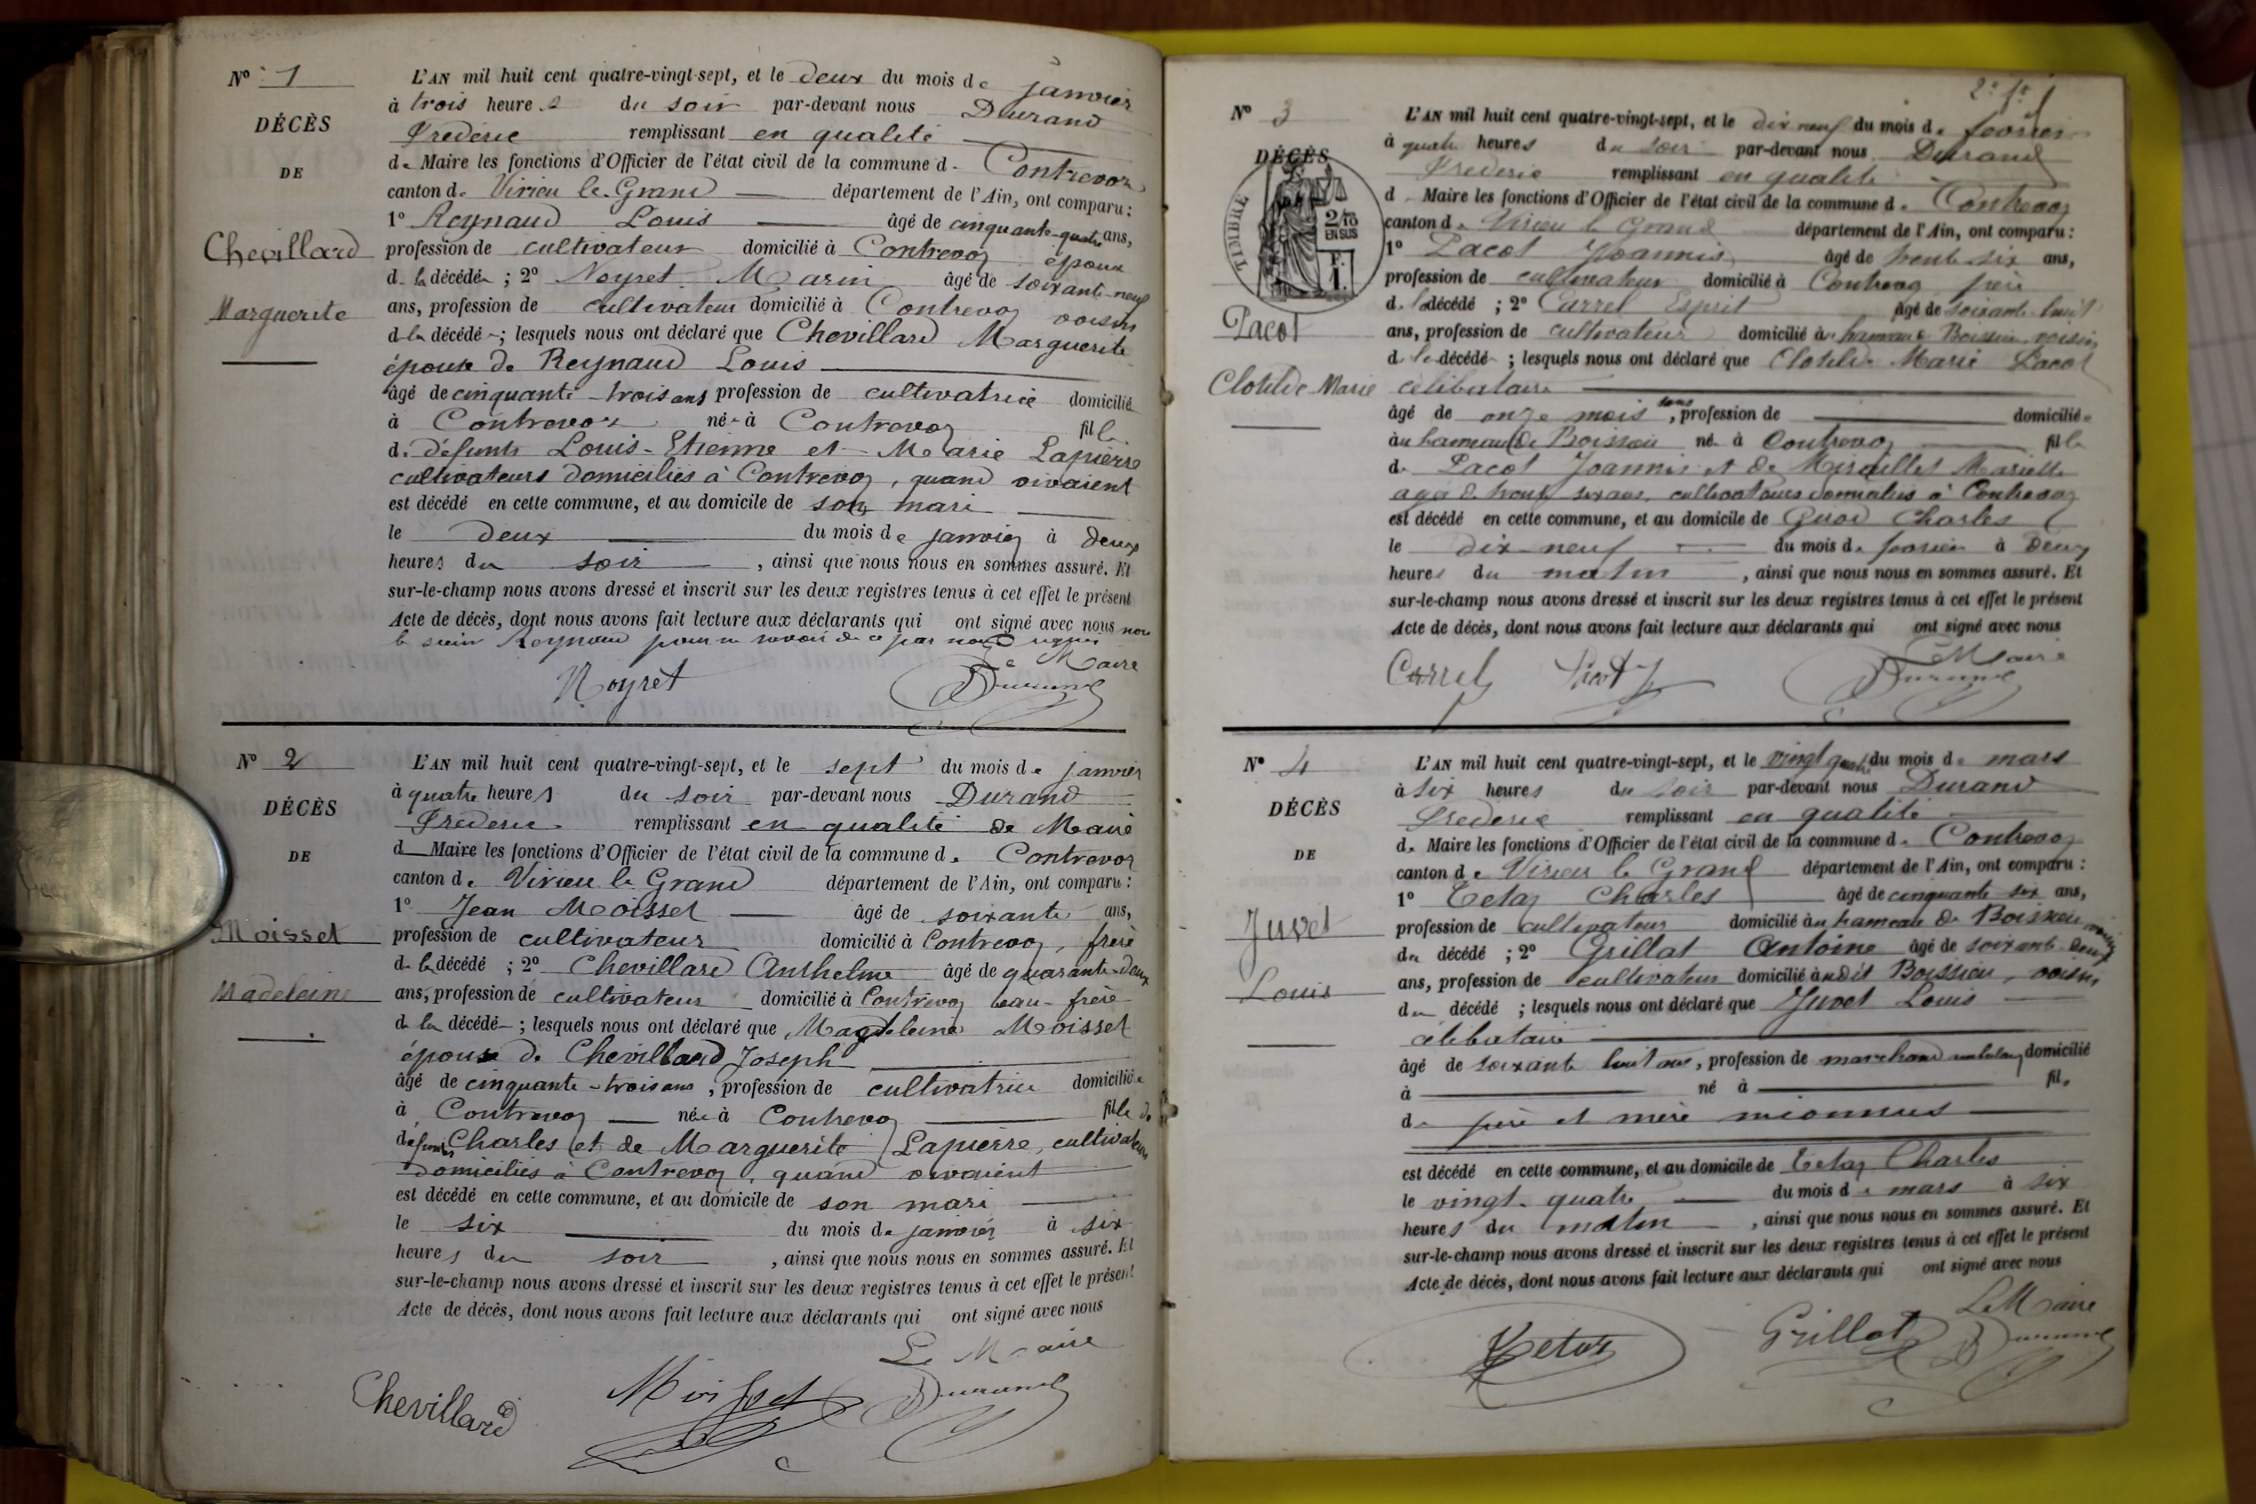 N° 1
DÉCÈS
DE
Chevillard
Marguerite
L'AN mil huit cent quatre-vingt-sept, et le deux du mois de janvier
à trois heures du soir par-devant nous Durand
Fréderic remplissant en qualité
de Maire les fonctions d'Officier de l'état civil de la commune d. Contrevoz
canton de Virieu le Grand département de l'Ain, ont comparu :
1° Reynaud Louis âgé de cinquante-quatre ans,
profession de cultivateur domicilié à Contrevoz époux
d. la décédée ; 2° Noyret Marin âgé de soixante-neuf
ans, profession de cultivateur domicilié à Contrevoz voisin
d. la décédé ; lesquels nous ont déclaré que Chevillard Marguerite
épouse de Reynaud Louis
âgé de cinquante-trois ans profession de cultivatrice domicilié
à Contrevoz née à Contrevoz fille
d. défunts Louis-Etienne et Marie Lapierre
cultivateurs domiciliés à Contrevoz, quand vivaient
est décédé en cette commune, et au domicile de son mari
le deux du mois de janvier à deux
heures du soir, ainsi que nous nous en sommes assuré. Et
sur-le-champ nous avons dressé et inscrit sur les deux registres tenus à cet effet le présent
Acte de décès, dont nous avons fait lecture aux déclarants qui ont signé avec nous non
le sieur Reynaud pour ne savoir de ce par nous requis
Le Maire
Noyret Durand
N° 2
DÉCÈS
DE
Moisset
Madeleine
L'AN mil huit cent quatre-vingt-sept, et le sept du mois de janvier
à quatre heures du soir par-devant nous Durand
Fréderic remplissant en qualité de Maire
d Maire les fonctions d'Officier de l'état civil de la commune d. Contrevoz
canton de Virieu le Grand département de l'Ain, ont comparu :
1° Jean Moisset âgé de soixante ans,
profession de cultivateur domicilié à Contrevoz, frère
d. la décédé ; 2° Chevillard Anthelme âgé de quarante-deux
ans, profession de cultivateur domicilié à Contrevoz beau-frère
d la décédé ; lesquels nous ont déclaré que Magdeleine Moisset
épouse de Chevillard Joseph
âgé de cinquante-trois ans, profession de cultivatrice domicilié
à Contrevoz née à Contrevoz fille de
défunts Charles et de Marguerite Lapierre, cultivateurs
domiciliés à Contrevoz, quand vivaient
est décédé en cette commune, et au domicile de son mari
le six du mois de janvier à six
heures du soir, ainsi que nous nous en sommes assuré. Et
sur-le-champ nous avons dressé et inscrit sur les deux registres tenus à cet effet le présent
Acte de décès, dont nous avons fait lecture aux déclarants qui ont signé avec nous
Le Maire
Chevillard Moisset Durand
2e
N° 3
DÉCÈS
TIMBRE
2/10
EN SUS
F.
1.
Pacot
Clotilde Marie
L'AN mil huit cent quatre-vingt-sept, et le dix neuf du mois de fevrier
à quatre heures du soir par-devant nous Durand
Fréderic remplissant en qualité
d Maire les fonctions d'Officier de l'état civil de la commune d. Contrevoz
canton de Virieu le Grand département de l'Ain, ont comparu :
1° Pacot Joannis âgé de trente six ans,
profession de cultivateur domicilié à Contrevoz père
d. la décédé ; 2° Carrel Esprit âgé de soixante huit
ans, profession de cultivateur domicilié à hameau Boissieu voisin
d. la décédé ; lesquels nous ont déclaré que Clotilde Marie Pacot
célibataire
âgé de onze mois, sans profession de domicilié
au hameau de Boissieu né à Contrevoz fille
de Pacot Joannis et de Miraillet Mariette
agés de trente six ans, cultivateurs domiciliés à Contrevoz
est décédé en cette commune, et au domicile de Guod Charles
le dix-neuf du mois de fevrier à deux
heures du matin, ainsi que nous nous en sommes assuré. Et
sur-le-champ nous avons dressé et inscrit sur les deux registres tenus à cet effet le présent
Acte de décès, dont nous avons fait lecture aux déclarants qui ont signé avec nous
Le Maire
Carrel Pacot Durand
N° 4
DÉCÈS
DE
Juvet
Louis
L'AN mil huit cent quatre-vingt-sept, et le vingt quatre du mois de mars
à six heures du soir par-devant nous Durand
Fréderic remplissant en qualité
d. Maire les fonctions d'Officier de l'état civil de la commune d. Contrevoz
canton de Virieu le Grand département de l'Ain, ont comparu :
1° Tetaz Charles âgé de cinquante six ans,
profession de cultivateur domicilié au hameau de Boissieu voisin
du décédé ; 2° Grillat Antoine âgé de soixante-deux
ans, profession de cultivateur domicilié au dit Boissieu, voisin
du décédé ; lesquels nous ont déclaré que Juvet Louis
célibataire
âgé de soixante huit ans, profession de marchand ambulant domicilié
à né à fil.
d. père et mère inconnus
est décédé en cette commune, et au domicile de Tetaz Charles
le vingt-quatre du mois de mars à six
heures du matin, ainsi que nous nous en sommes assuré. Et
sur-le-champ nous avons dressé et inscrit sur les deux registres tenus à cet effet le présent
Acte de décès, dont nous avons fait lecture aux déclarants qui ont signé avec nous
Le Maire
Tetaz Grillat Durand